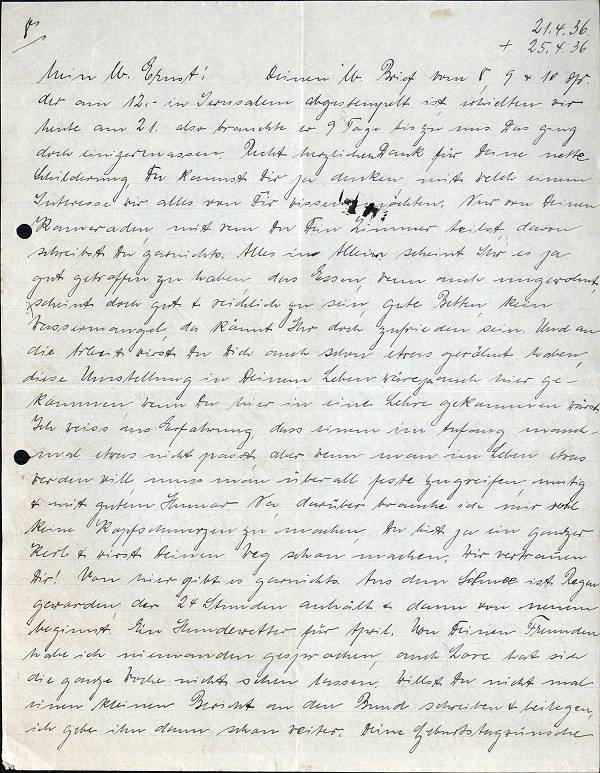 8
21.4.36
+ 25.4.36
Mein lb. Ernst! Deinen lb. Brief vom 8 9 & 10 Apr.
der am 12.- in Jerusalem abgestempelt ist, erhielten wir
heute am 21. also brauchte er 9 Tage bis zu uns. Das ging
doch einigermassen. Recht herzlichen Dank für Deine nette
Schilderung, Du kannst Dir ja denken, mit welch einem
Interesse wir alles von Dir wissen möchten. Nur von Deinen
Kameraden, mit dem Du Dein Zimmer teilst, davon
schreibst Du garnichts. Alles in Allem scheint Ihr es ja
gut getroffen zu haben, das Essen, wenn auch ungewohnt,
scheint doch gut & reichlich zu sein, gute Betten, kein
Wassermangel, da könnt Ihr doch zufrieden sein. Und an
die Arbeit wirst Du Dich auch schon etwas gewöhnt haben,
diese Umstellung in Deinem Leben wäre ja auch hier ge-
kommen wenn Du hier in eine Lehre gekommen wärst
Ich weiss aus Erfahrung, dass einem im Anfang manch-
mal etwas nicht passt, aber wenn man im Leben etwas
werden will, muss man überall feste zugreifen, mutig
& mit gutem Humor. Na, darüber brauche ich mir wohl
keine Kopfschmerzen zu machen, Du bist ja ein ganzer
Kerl & wirst Deinen Weg schon machen. Wir vertrauen
Dir! Von hier gibt es garnichts. Aus dem Schnee ist Regen
geworden, der 24 Stunden anhält & dann von neuem
beginnt. Ein Hundewetter für April. Von Deinen Freunden
habe ich niemanden gesprochen, auch Lore hat sich
die ganze Woche nicht sehen lassen, willst Du nicht mal
einen kleinen Bericht an den Bund schreiben & beilegen,
ich gebe ihn dann schon weiter. Deine Geburtstagwünsche